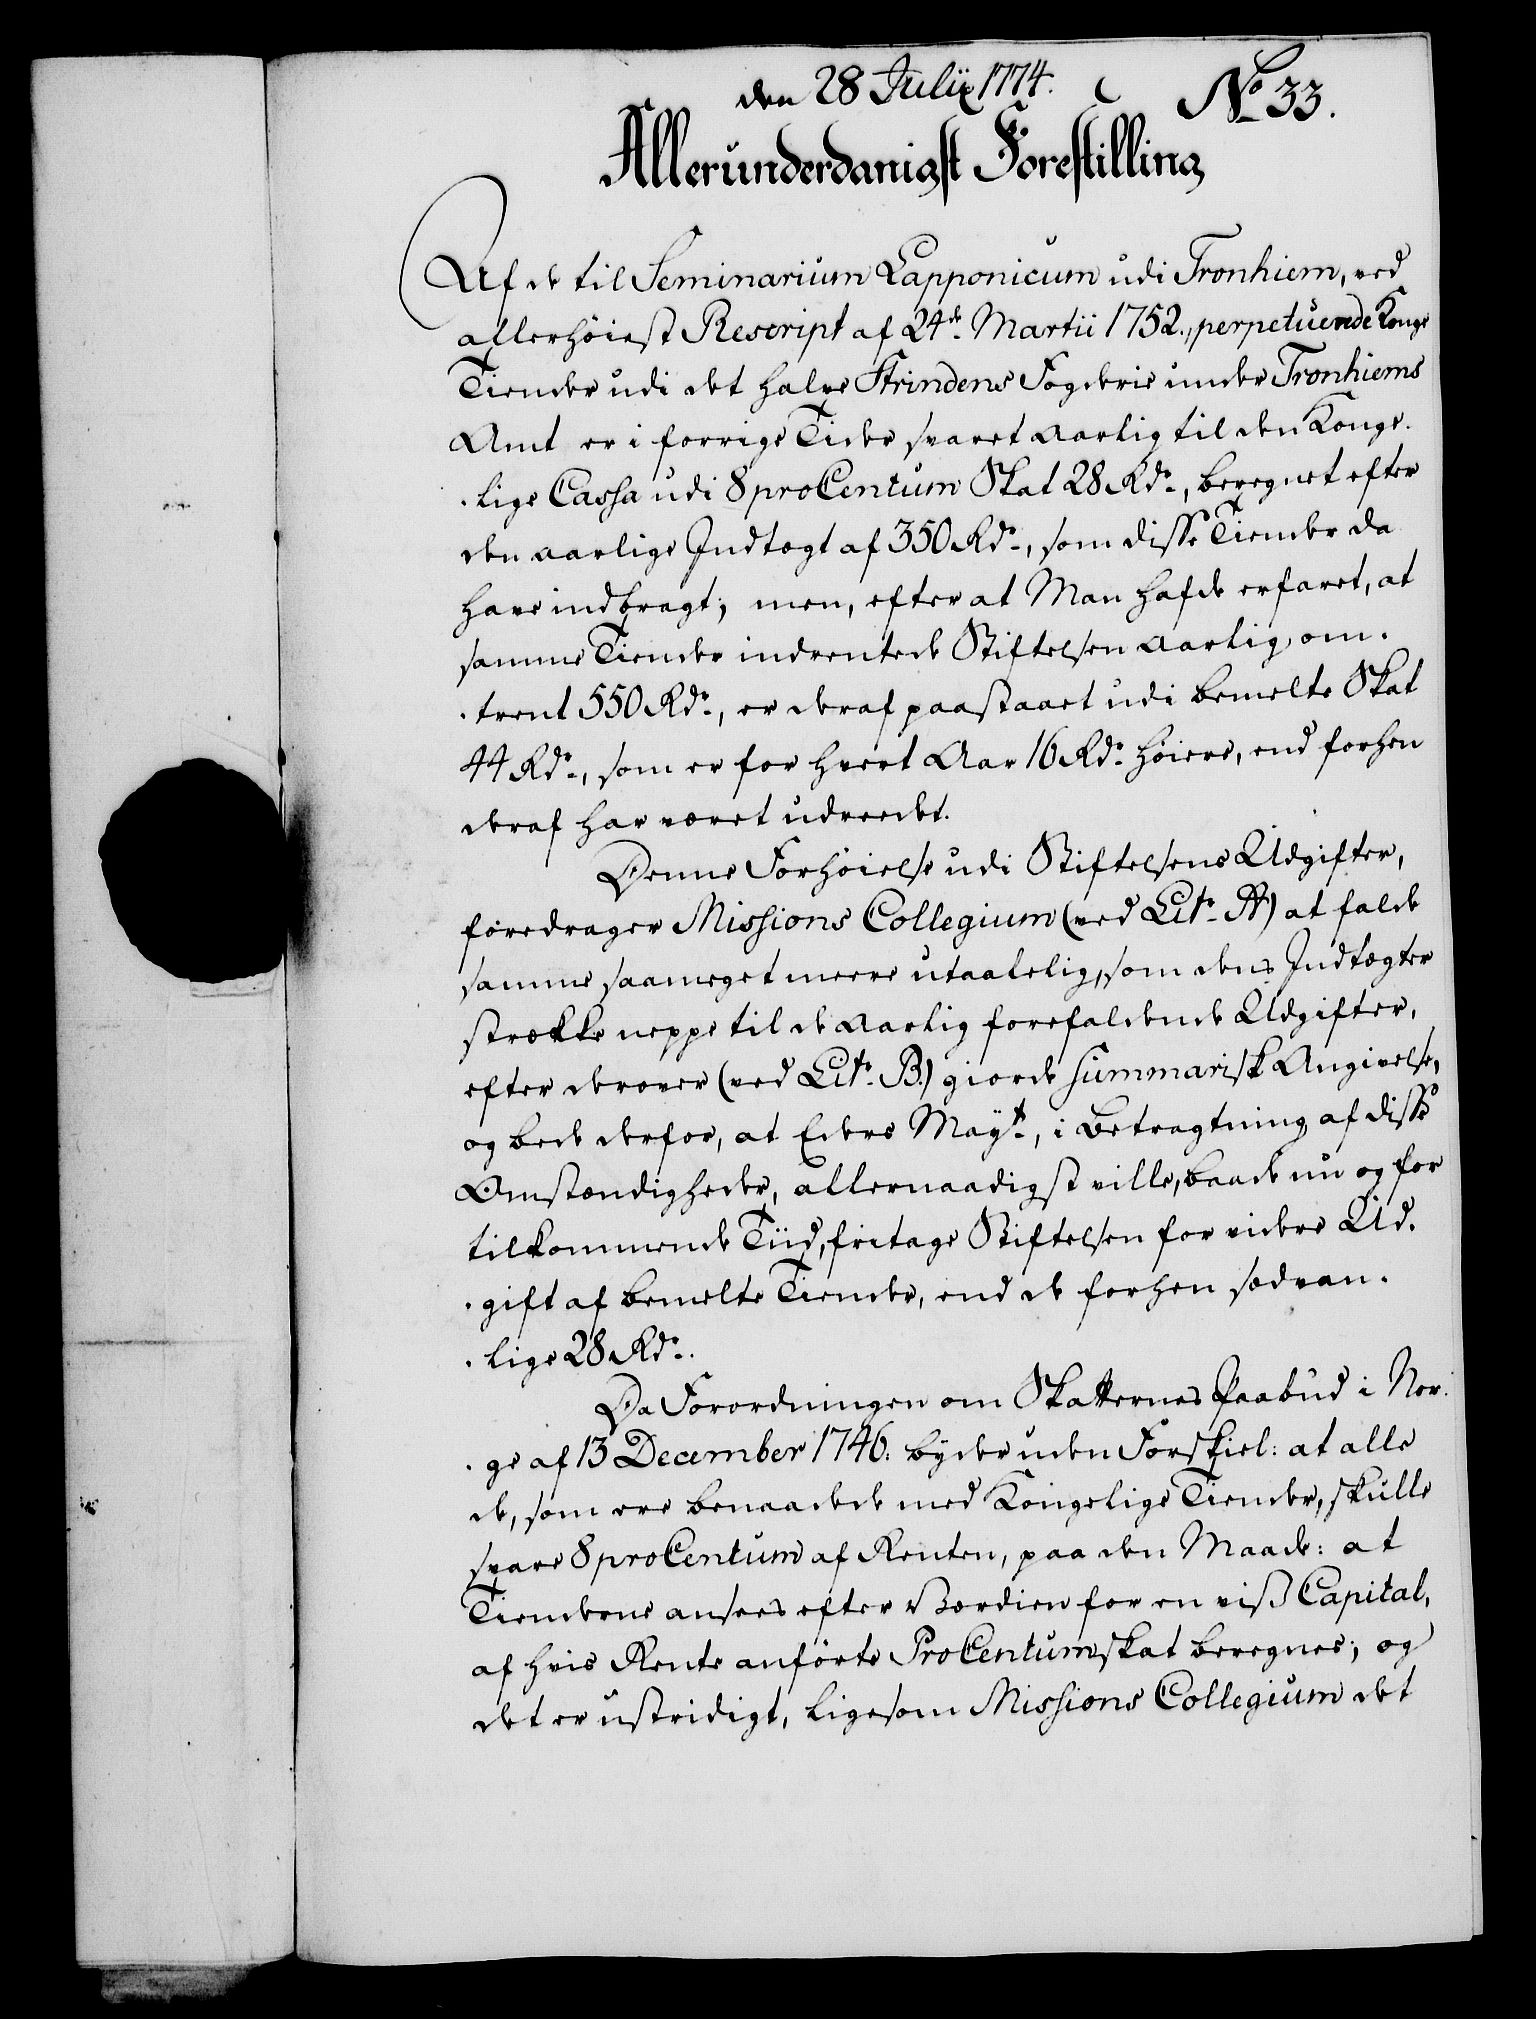 den 28 Julii 1774. No 33.
Allerunderdanigst Forestilling
Af de til Seminarium Lapponicum udi Tronhiem, ved
allerhøiest Rescript af 24de Martii 1752., perpetuerede Konge
Tiender udi det halve Strindens Fogderie under Tronhiems
Amt er i forrige Tider svaret aarlig til den Konge-
-lige Cassa udi 8 proCentum Skat 28 Rdr., beregnet efter
den aarlige Indtægt af 350 Rdr., som disse Tiender da
have indbragt; men, efter at Man hafde erfaret, at
samme Tiender indrentede Stiftelsen aarlig om-
-trent 550 Rdr., er deraf paastaaet udi bemelte Skat
44 Rdr., som er for hvert Aar 16 Rdr. høiere, end forhen
deraf har været udreedet.
Denne Forhøielse udi Stiftelsens Udgifter,
foredrager Missions Collegium (ved Litr. A) at falde
samme saameget meere utaalelig, som dens Indtægter
strække neppe til de aarlig forefaldende Udgifter,
efter derover (ved Litr. B.) giorde summarisk Angivelse,
og bede derfor, at Eders Mayt., i Betragtning af disse
Omstændigheder, allernaadigst ville, baade nu og for
tilkommende Tiid, fritage Stiftelsen for videre Ud-
-gift af bemelte Tiender, end de forhen sædvan-
-lige 28 Rdr.
Da Forordningen om Skatternes Paabud i Nor-
-ge af 13 December 1746. byder uden Forskiel: at alle
de, som ere benaadede med Kongelige Tiender, skulle
svare 8 proCentum af Renten, paa den Maade: at
Tienderne ansees efter Værdien for en viss Capital,
af hvis Rente anførte ProCentumskat beregnes; og
det er ustridigt, ligesom Missions Collegium det